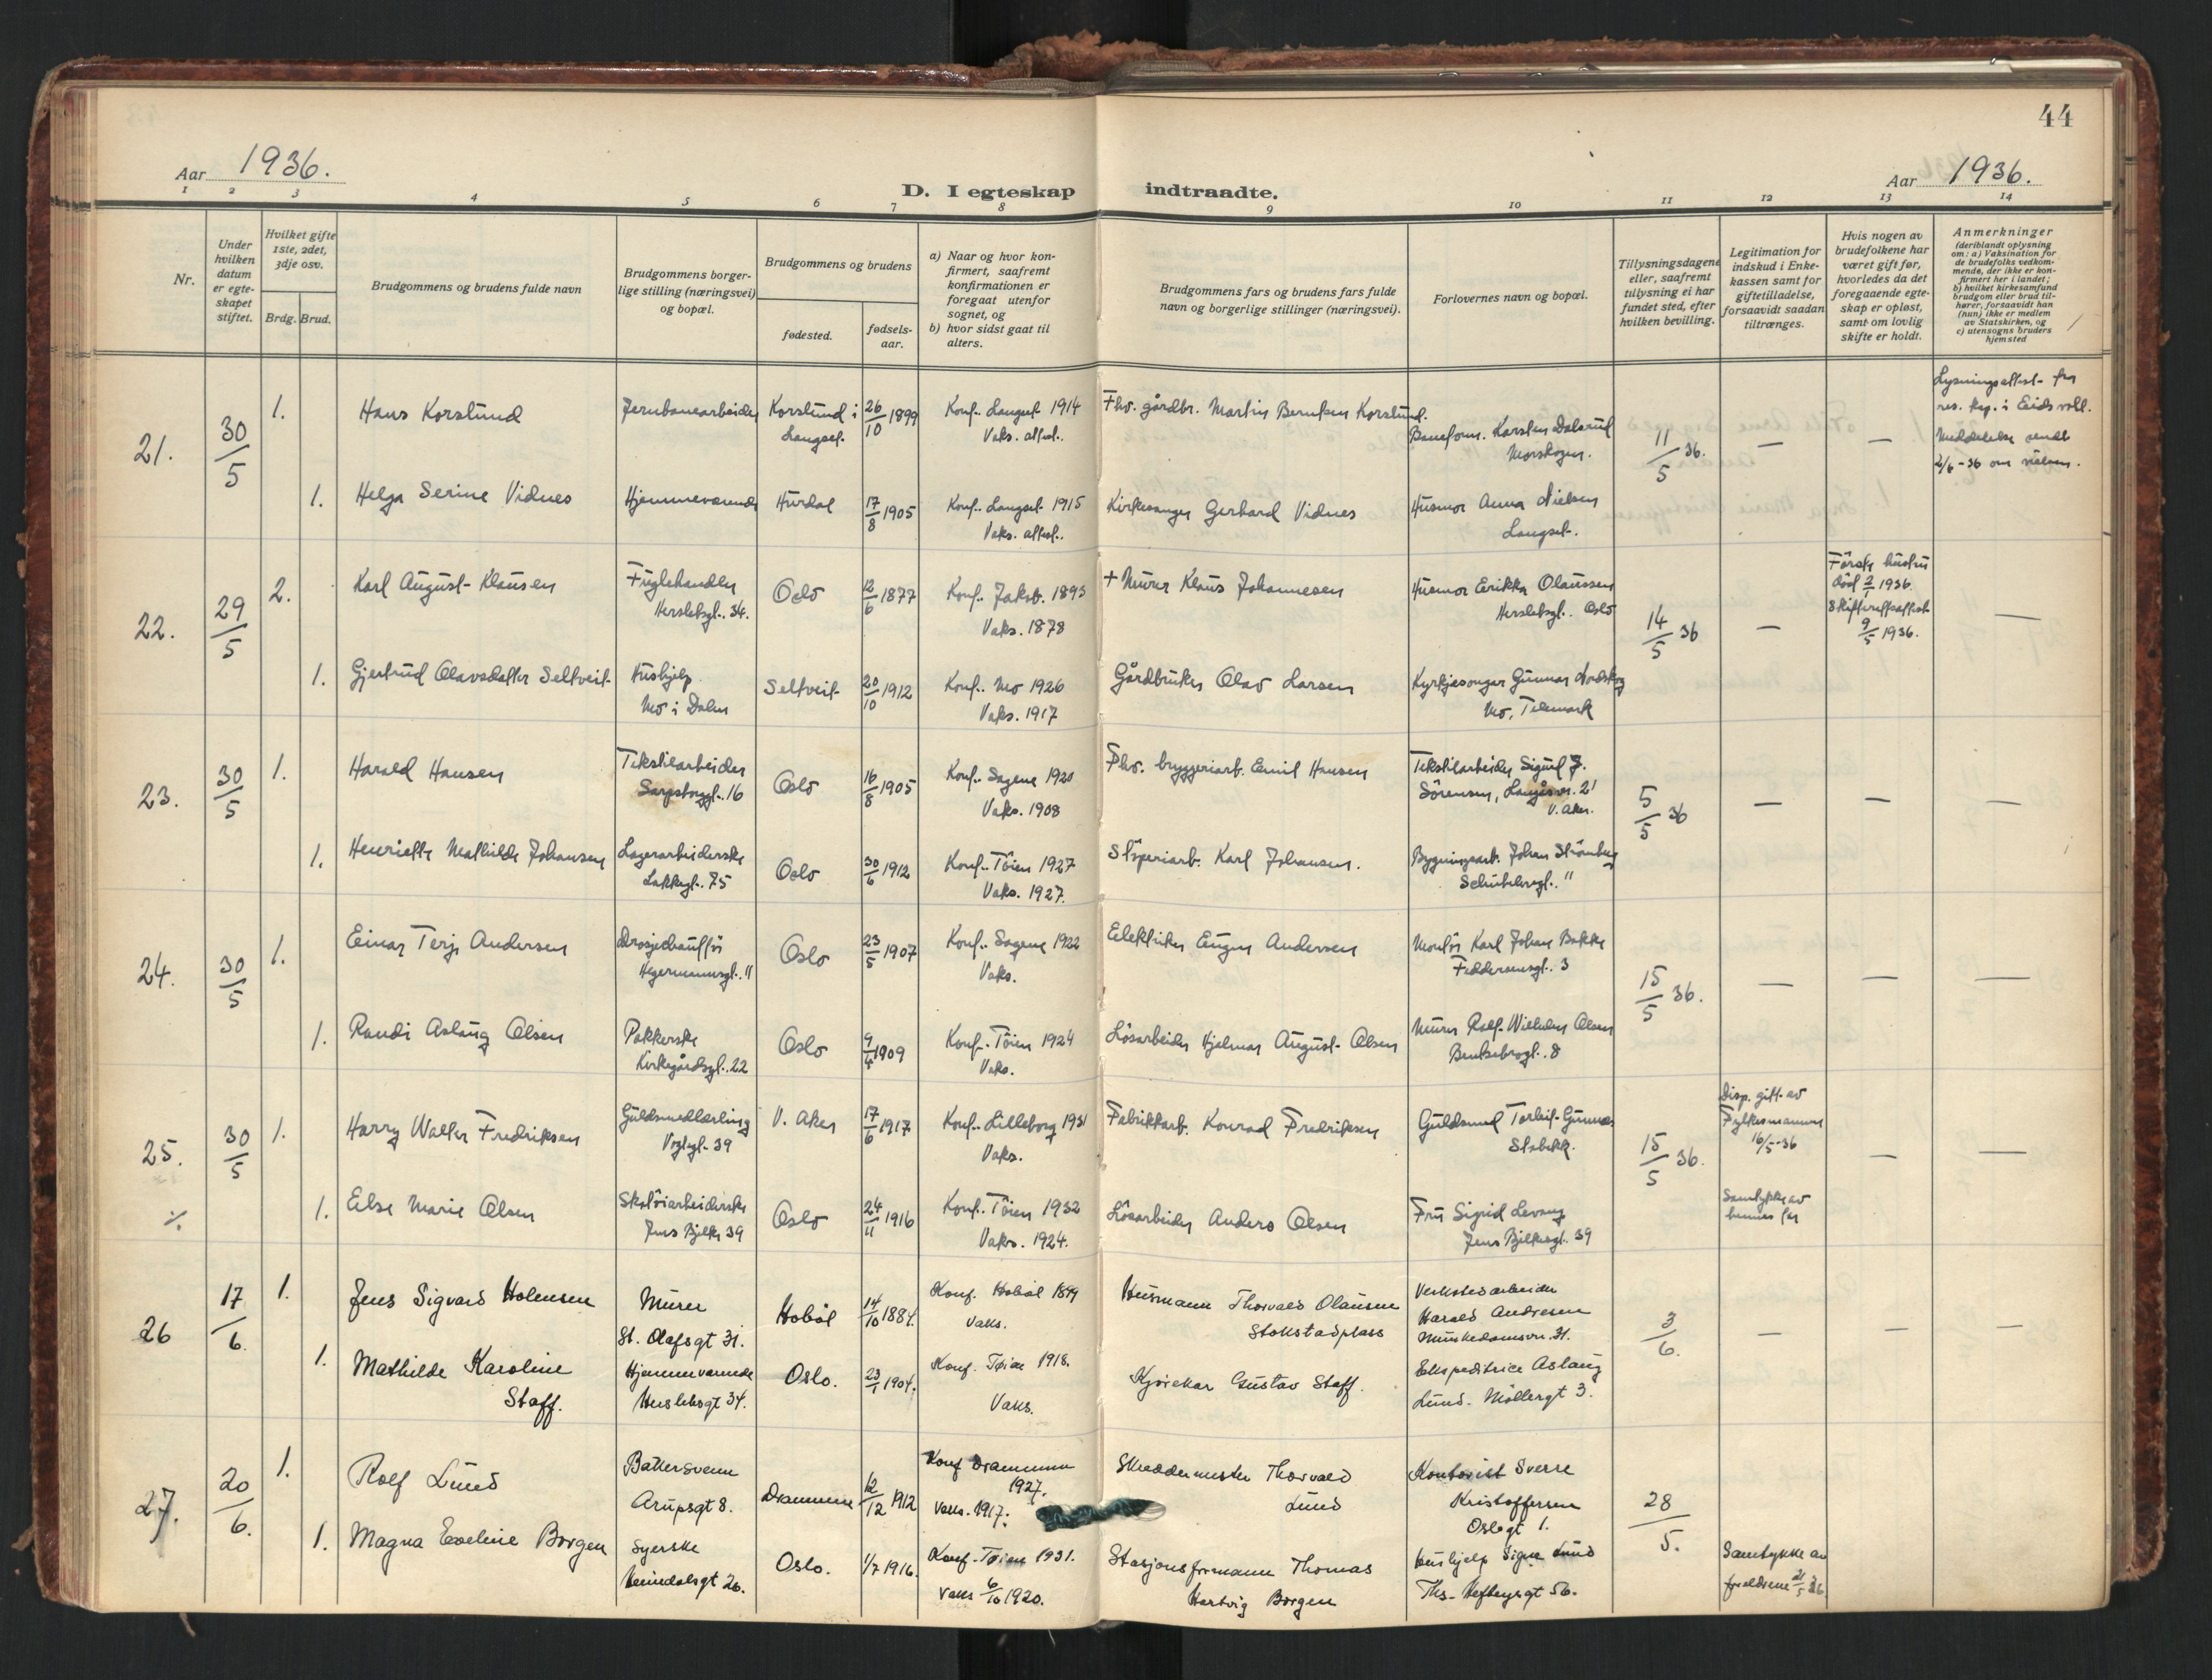 44
Aar 1936.
D. I egteskap indtraadte.
Aar 1936.
1 2 3 4 5 6 7 8 9 10 11 12 13 14
Nr.
Under hvilken datum er egte-skapet stiftet.
Hvilket gifte 1ste, 2det, 3dje osv.
Brdg. Brud.
Brudgommens og brudens fulde navn
Brudgommens borger-lige stilling (næringsvei) og bopæl.
Brudgommens og brudens
fødested.
fødsels-aar.
a) Naar og hvor kon-firmert, saafremt konfirmationen er foregaat utenfor sognet, og
b) hvor sidst gaat til alters.
Brudgommens fars og brudens fars fulde navn og borgerlige stillinger (næringsvei).
Forlovernes navn og bopæl.
Tillysningsdagene eller, saafremt tillysning ei har fundet sted, efter hvilken bevilling.
Legitimation for indskud i Enke-kassen samt for giftetilladelse, forsaavidt saadan tiltrænges.
Hvis nogen av brudefolkene har været gift før, hvorledes da det foregaaende egte-skap er opløst, samt om lovlig skifte er holdt.
Anmerkninger (deriblandt oplysning om: a) Vaksination for de brudefolks vedkom-mende, der ikke er kon-firmert her i landet; b) hvilket kirkesamfund brudgom eller brud til-hører, forsaavidt han (hun) ikke er medlem av Statskirken, og c) utensogns bruders hjemsted
21. 30/5 1. Hans Korslund Jernbanearbeider Korslund i Langset. 26/10 1899 Konf. Langset 1914 Vaks. attest. Fhv. gårdbr. Martin Berntsen Korslund. Baneform. Karsten Dalsrud Morskogen. 11/5 36. — — Lysningsattest fra res. kap. i Eidsvoll. Meddelelse sendt 2/6-36 om vielsen.
1. Helga Serine Vidnes Hjemmeværende Hurdal 17/8 1905 Konf. Langset 1915 Vaks. attest. Kirkesanger Gerhard Vidnes Husmor Anna Nielsen Langset.
22. 29/5 2. Karl August Klausen Fuglehandler Herslebsgt. 34. Oslo 12/6 1877 Konf. Jakob. 1893 Vaks. 1878 + Murer Klaus Johannesen Husmor Erikka Olaussen Herslebsgt. Oslo 14/5 36 — Første hustru død 2/1 1936. Skifterettsattest 9/5 1936. —
1. Gjertrud Olavsdatter Seltveit Hushjelp. Mo i Dalen Seltveit 20/10 1912 Konf. Mo 1926 Vaks. 1917 Gårdbruker Olav Larsen Kyrkjesongar Gunnar Nordskog Mo, Telemark
23. 30/5 1. Harald Hansen Tekstilarbeider Sarpsborggt. 16 Oslo 16/8 1905 Konf. Sagene 1920 Vaks. 1908 Fhv. bryggeriarb. Emil Hansen Tekstilarbeider Sigurd F. Sörensen, 21 V. Aker. 5/5 36 — — —
1. Henriette Mathilde Johansen Lagerarbeiderske Lakkegt. 75 Oslo 30/6 1912 Konf. Töien 1927 Vaks. 1927. Støperiarb. Karl Johansen. Bygningsarb. Johan Strömberg Schübelersgt. 11
24. 30/5 1. Einar Terje Andersen Drosjechauffør Hegermannsgt. 11 Oslo 23/5 1907 Konf. Sagene 1922 Vaks. Elektriker Eugen Andersen Montör Karl Johan Bakke Feddersensgt. 3 15/5 36. — — —
1. Randi Aslaug Olsen Pakkerske Kirkegårdsgt. 22 Oslo 9/4 1909 Konf. Töien 1924 Vaks. Lösarbeider Hjalmar August Olsen Murer Rolf Wilhelm Olsen Bentsebrogt. 8
25. 30/5 1. Harry Walter Fredriksen Guldsmedlærling Vogtsgt. 39 V. Aker 17/6 1917 Konf. Lilleborg 1931 Vaks. Fabrikkarb. Konrad Fredriksen Guldsmed Torleif Gunnes Stabekk. 15/5 36. Disp. gitt av Fylkesmannen 16/5-36 — —
1. Else Marie Olsen Skotöiarbeiderske Jens Bjelkes 39 Oslo 24/11 1916 Konf. Töien 1932 Vaks. 1924. Lösarbeider Anders Olsen Fru Sigrid Levang Jens Bjelkesgt. 39 Samtykke av hennes far
26 17/6. 1. Jens Sigvard Holensen Murer St. Olafsgt 31. Hobøl 14/10 1884. Konf. Hobøl 1899 Vaks. Husmann Thorvald Olausen Stokstadplass Verkstedarbeider Harald Andresen Munkedamsvn. 31. 3/6. — — —
1. Mathilde Karoline Staff. Hjemmeværende Herslebsgt 34. Oslo. 23/1 1904. Konf. Tøien 1918. Vaks. Kjørekar Gustav Staff. Ekspeditrice Aslaug Lund. Møllergt 3.
27. 20/6. 1. Rolf Lund Bakersvenn Arupsgt 8. Drammen 12/12 1912 Konf Drammen 1927. Vaks. 1917. Skreddermester Thorvald Lund Kontorist Sverre Kristoffersen Oslogt 1. 28/5.
1. Magna Eveline Borgen Syerske Heimdalsgt 26. Oslo. 1/7 1916. Konf. Tøien 1931. Vaks 6/10 1920. Stasjonsformann Thomas Hartvig Borgen Hushjelp Signe Lund Ths. Heftyesgt 56. Samtykke av foreldrene 21/5 36